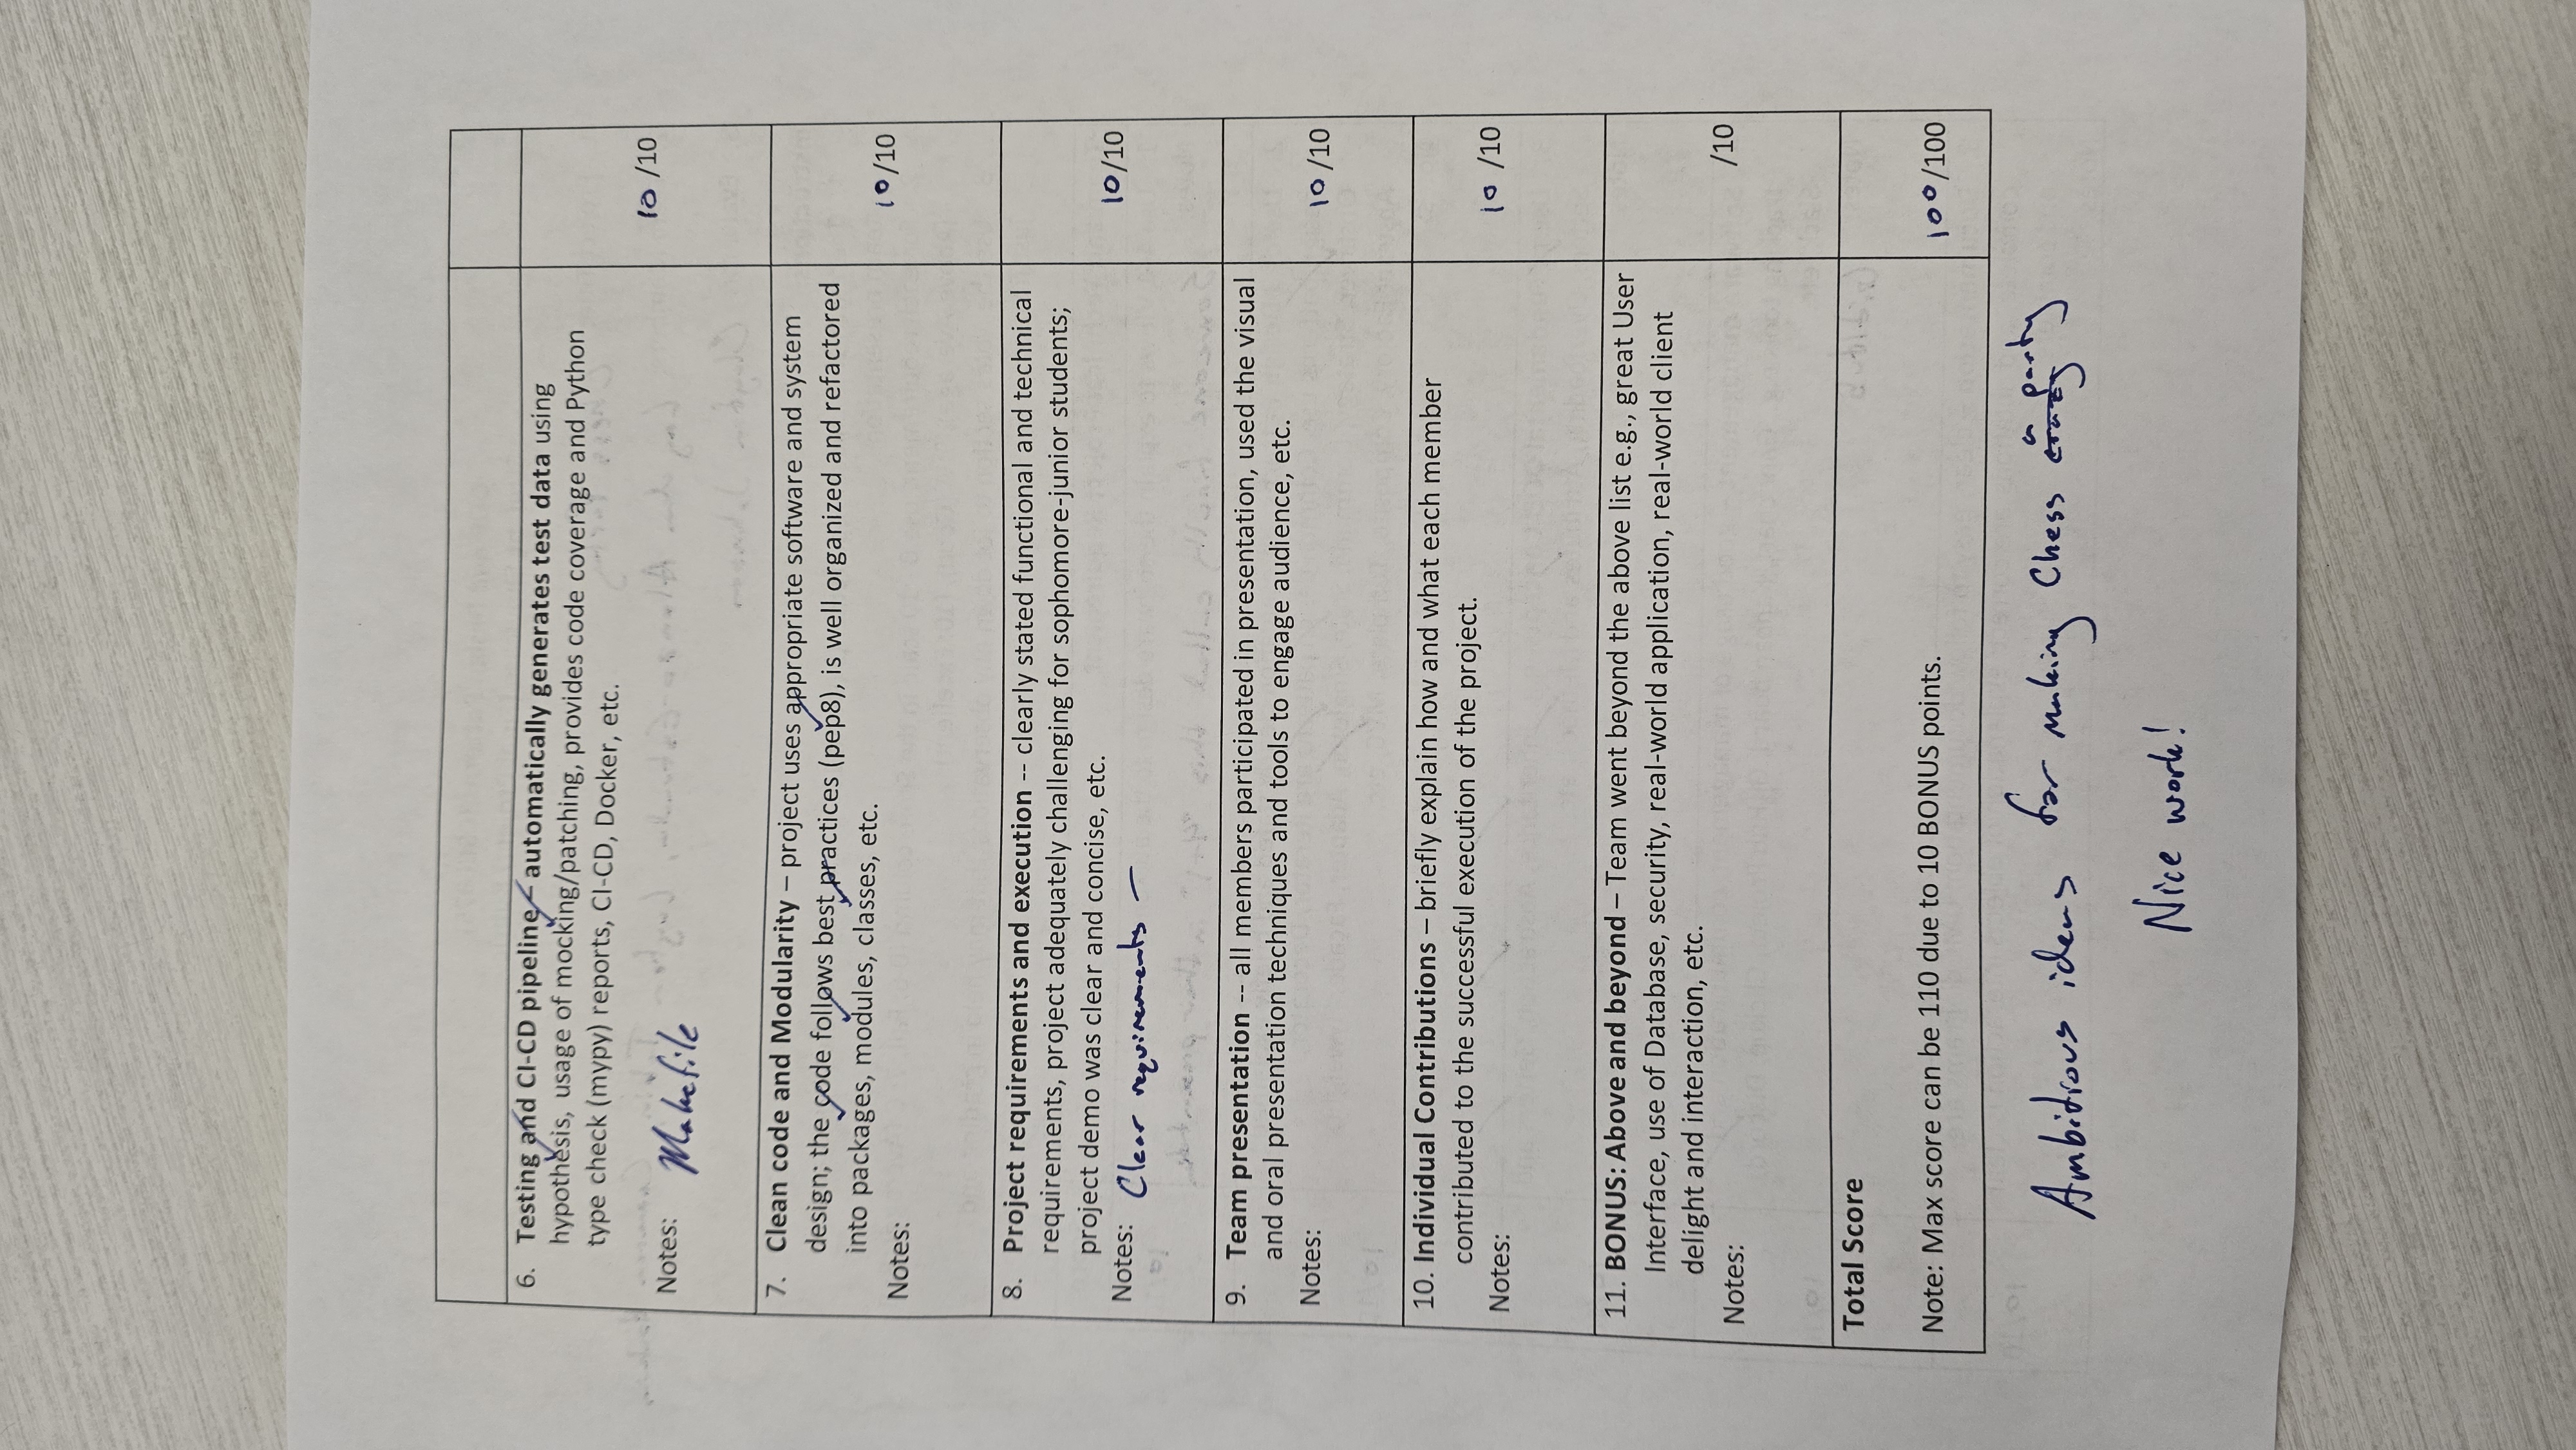 6. Testing and CI-CD pipeline – automatically generates test data using
hypothesis, usage of mocking/patching, provides code coverage and Python
type check (mypy) reports, CI-CD, Docker, etc.
Notes: Makefile
10/10
7. Clean code and Modularity – project uses appropriate software and system
design; the code follows best practices (pep8), is well organized and refactored
into packages, modules, classes, etc.
Notes:
10/10
8. Project requirements and execution -- clearly stated functional and technical
requirements, project adequately challenging for sophomore-junior students;
project demo was clear and concise, etc.
Notes: Clear requirements —
10/10
9. Team presentation -- all members participated in presentation, used the visual
and oral presentation techniques and tools to engage audience, etc.
Notes:
10/10
10. Individual Contributions – briefly explain how and what each member
contributed to the successful execution of the project.
Notes:
10/10
11. BONUS: Above and beyond – Team went beyond the above list e.g., great User
Interface, use of Database, security, real-world application, real-world client
delight and interaction, etc.
Notes:
/10
Total Score
Note: Max score can be 110 due to 10 BONUS points.
100/100
Ambitious ideas for making Chess a party
Nice work!